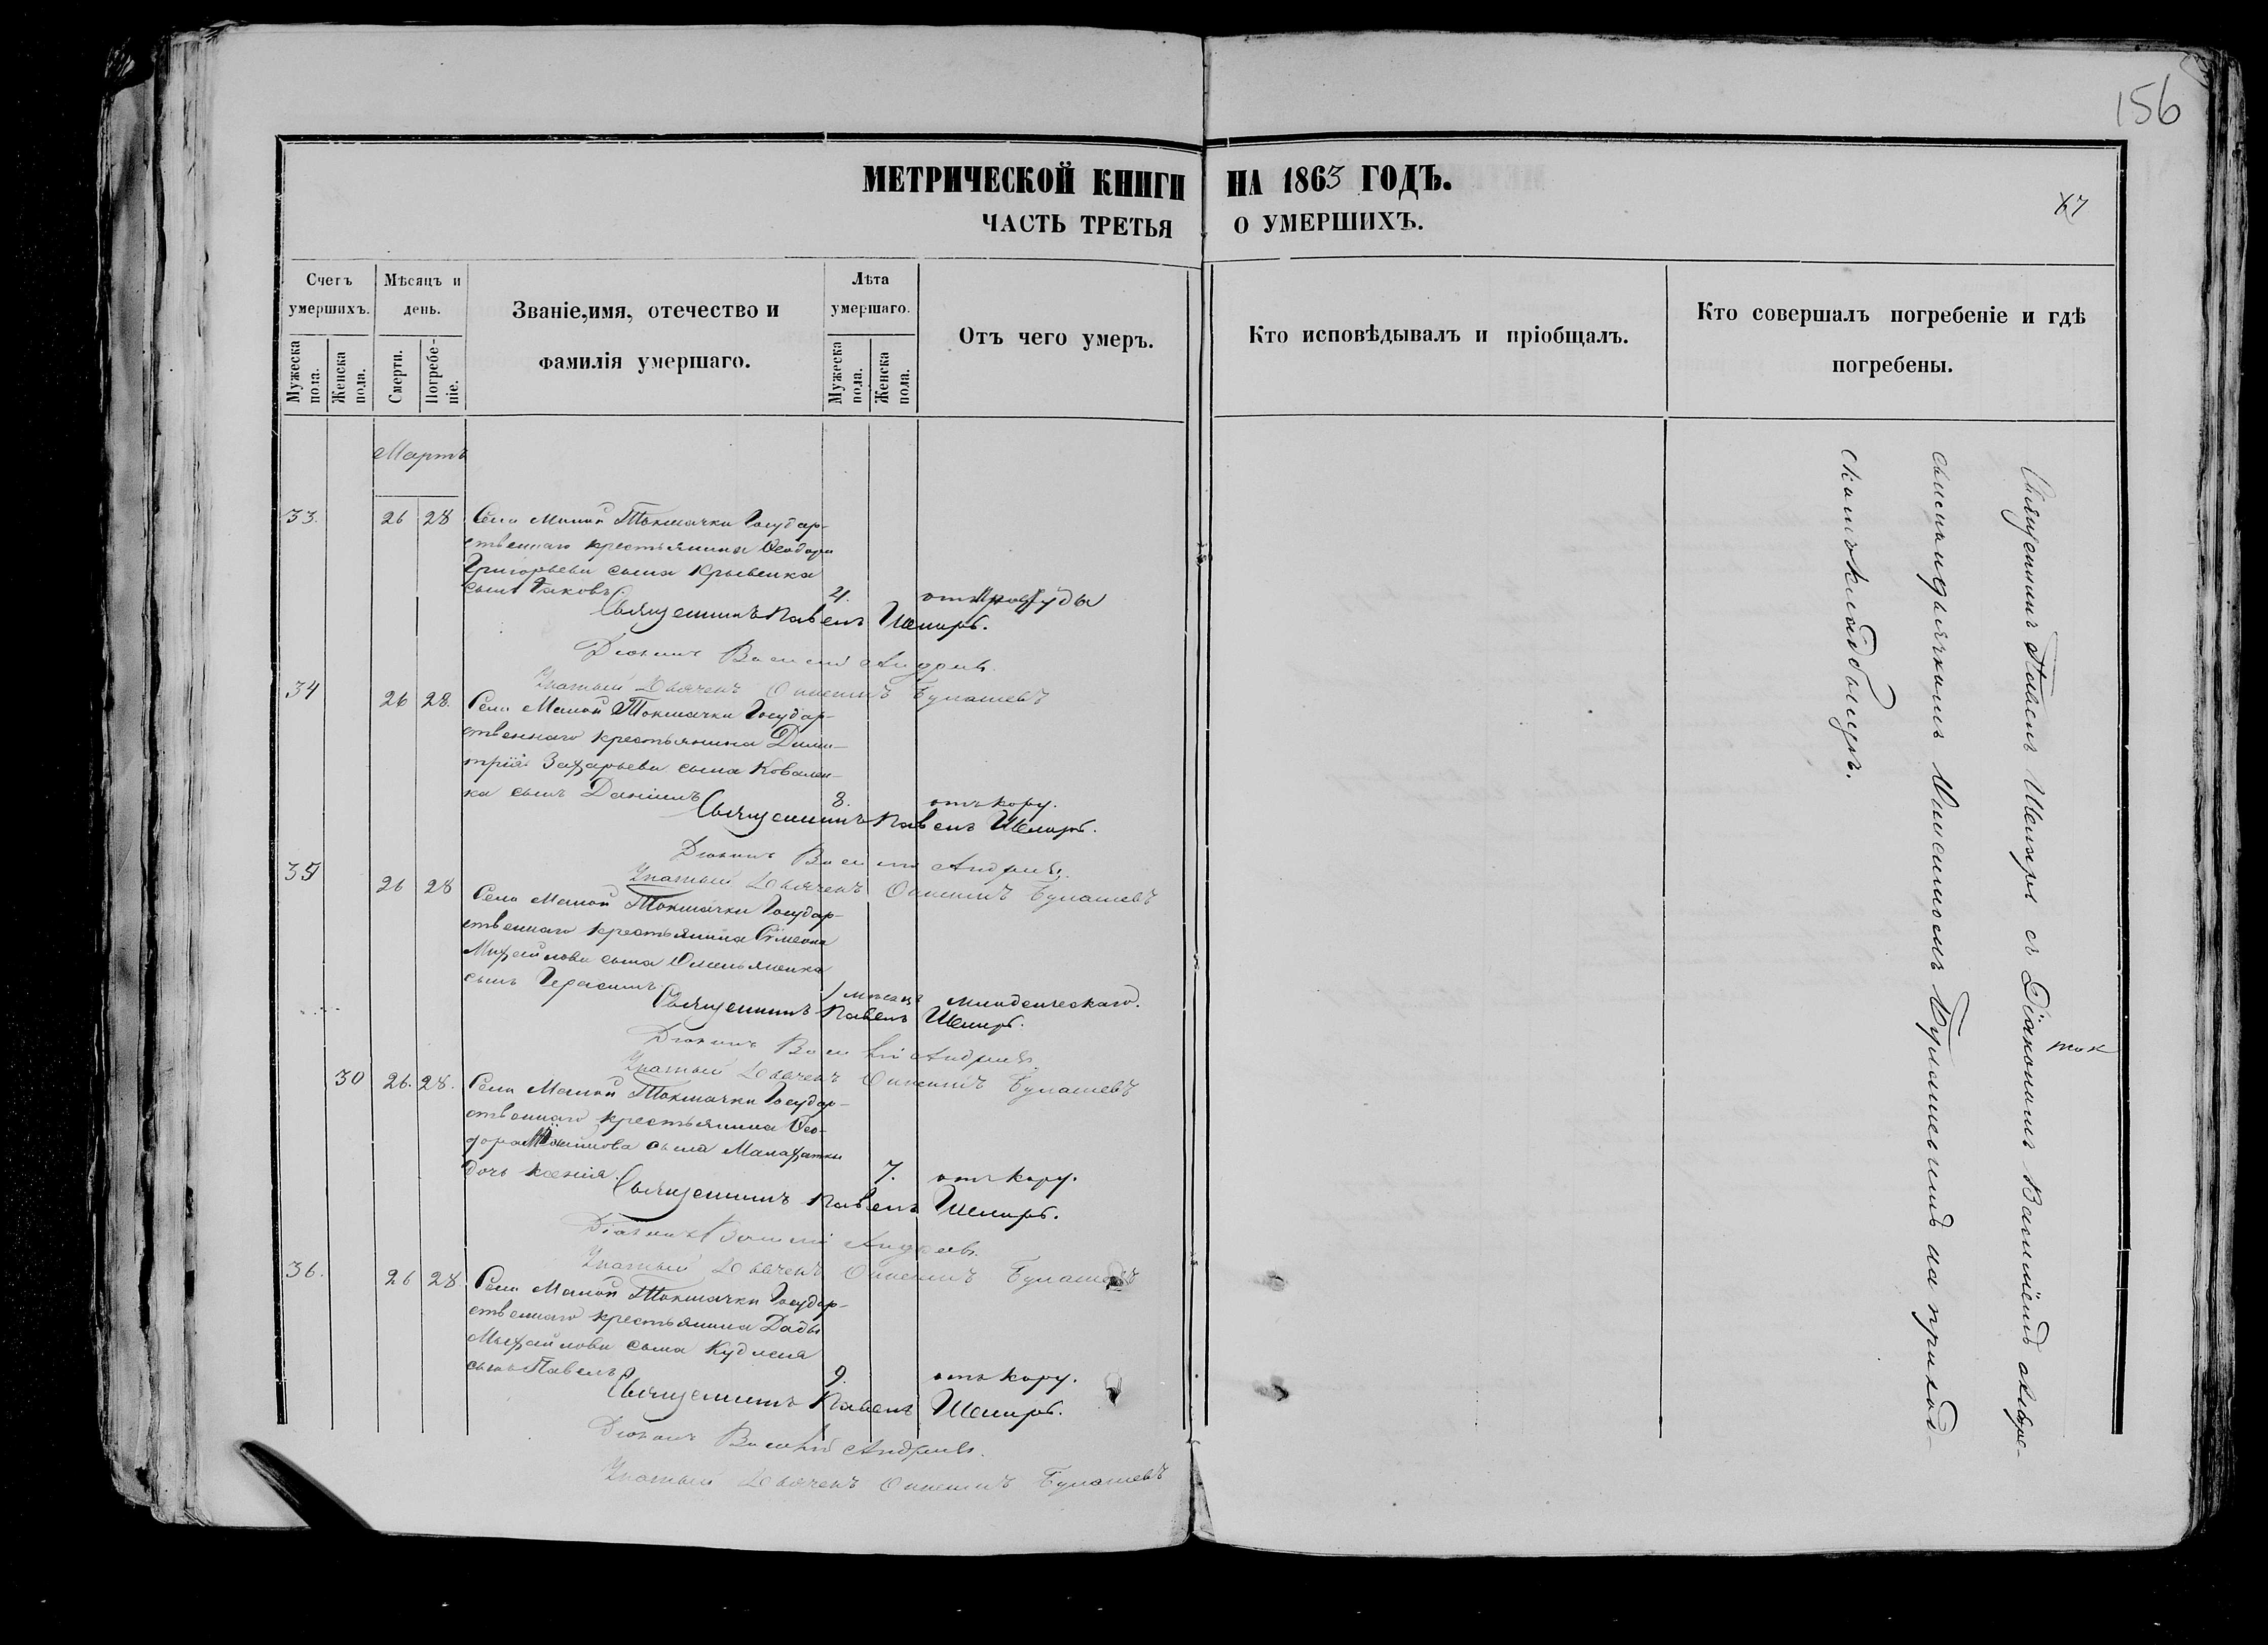 156
МЕТРИЧЕСКОЙ КНИГИ НА 1863 ГОДЪ.
67
ЧАСТЬ ТРЕТЬЯ О УМЕРШИХЪ.
Счетъ умершихъ.
Мужеска пола.
Женска пола.
Мѣсяцъ и день.
Смерти.
Погребе-ніе.
Званіе, имя, отечество и фамилія умершаго.
Лѣта умершаго.
Мужеска пола.
Женска пола.
Отъ чего умеръ.
Кто исповѣдывалъ и пріобщалъ.
Кто совершалъ погребеніе и гдѣ погребены.
Мартъ
33. 26 28 Села Малой Токмачки Государ-
ственнаго крестьянина Ѳеодора
Григорьева сына Крывенка
сынъ Іаковъ 4. отъ простуды
Священникъ Павелъ Шемяръ.
Діаконъ Василій Андреевъ.
Дьячекъ Булашевъ
34 26 28. Села Малой Токмачки Государ-
ственнаго крестьянина Дими-
трія Захарьева сына Ковален-
ка сынъ Даніилъ 8. отъ кору.
Священникъ Павелъ Шемяръ.
Діаконъ Василій Андреевъ.
Дьячекъ Булашевъ
35 26 28 Села Малой Токмачки Государ-
ственнаго крестьянина Сѵмеона
Михайлова сына Омельяненка
сынъ Герасимъ 1 мѣсяцъ младенческаго.
Священникъ Павелъ Шемяръ.
Діаконъ Василій Андреевъ
Дьячекъ Булашевъ
30 26. 28. Села Малой Токмачки Государ-
ственнаго крестьянина Ѳео-
дора сына Малахатки
дочь Ксенія 7. отъ кору.
Священникъ Павелъ Шемяръ.
Діаконъ Василій Андреевъ.
Дьячекъ Булашевъ
36. 26 28 Села Малой Токмачки Государ-
ственнаго крестьянина
Михайлова сына
сынъ Павелъ 9. отъ кору.
Священникъ Павелъ Шемяръ.
Діаконъ Василій Андреевъ.
Дьячекъ Булашевъ
Священникъ Павелъ Шемяръ съ Діакономъ Василіемъ
Булашевымъ на приход-
скомъ кладбищѣ.